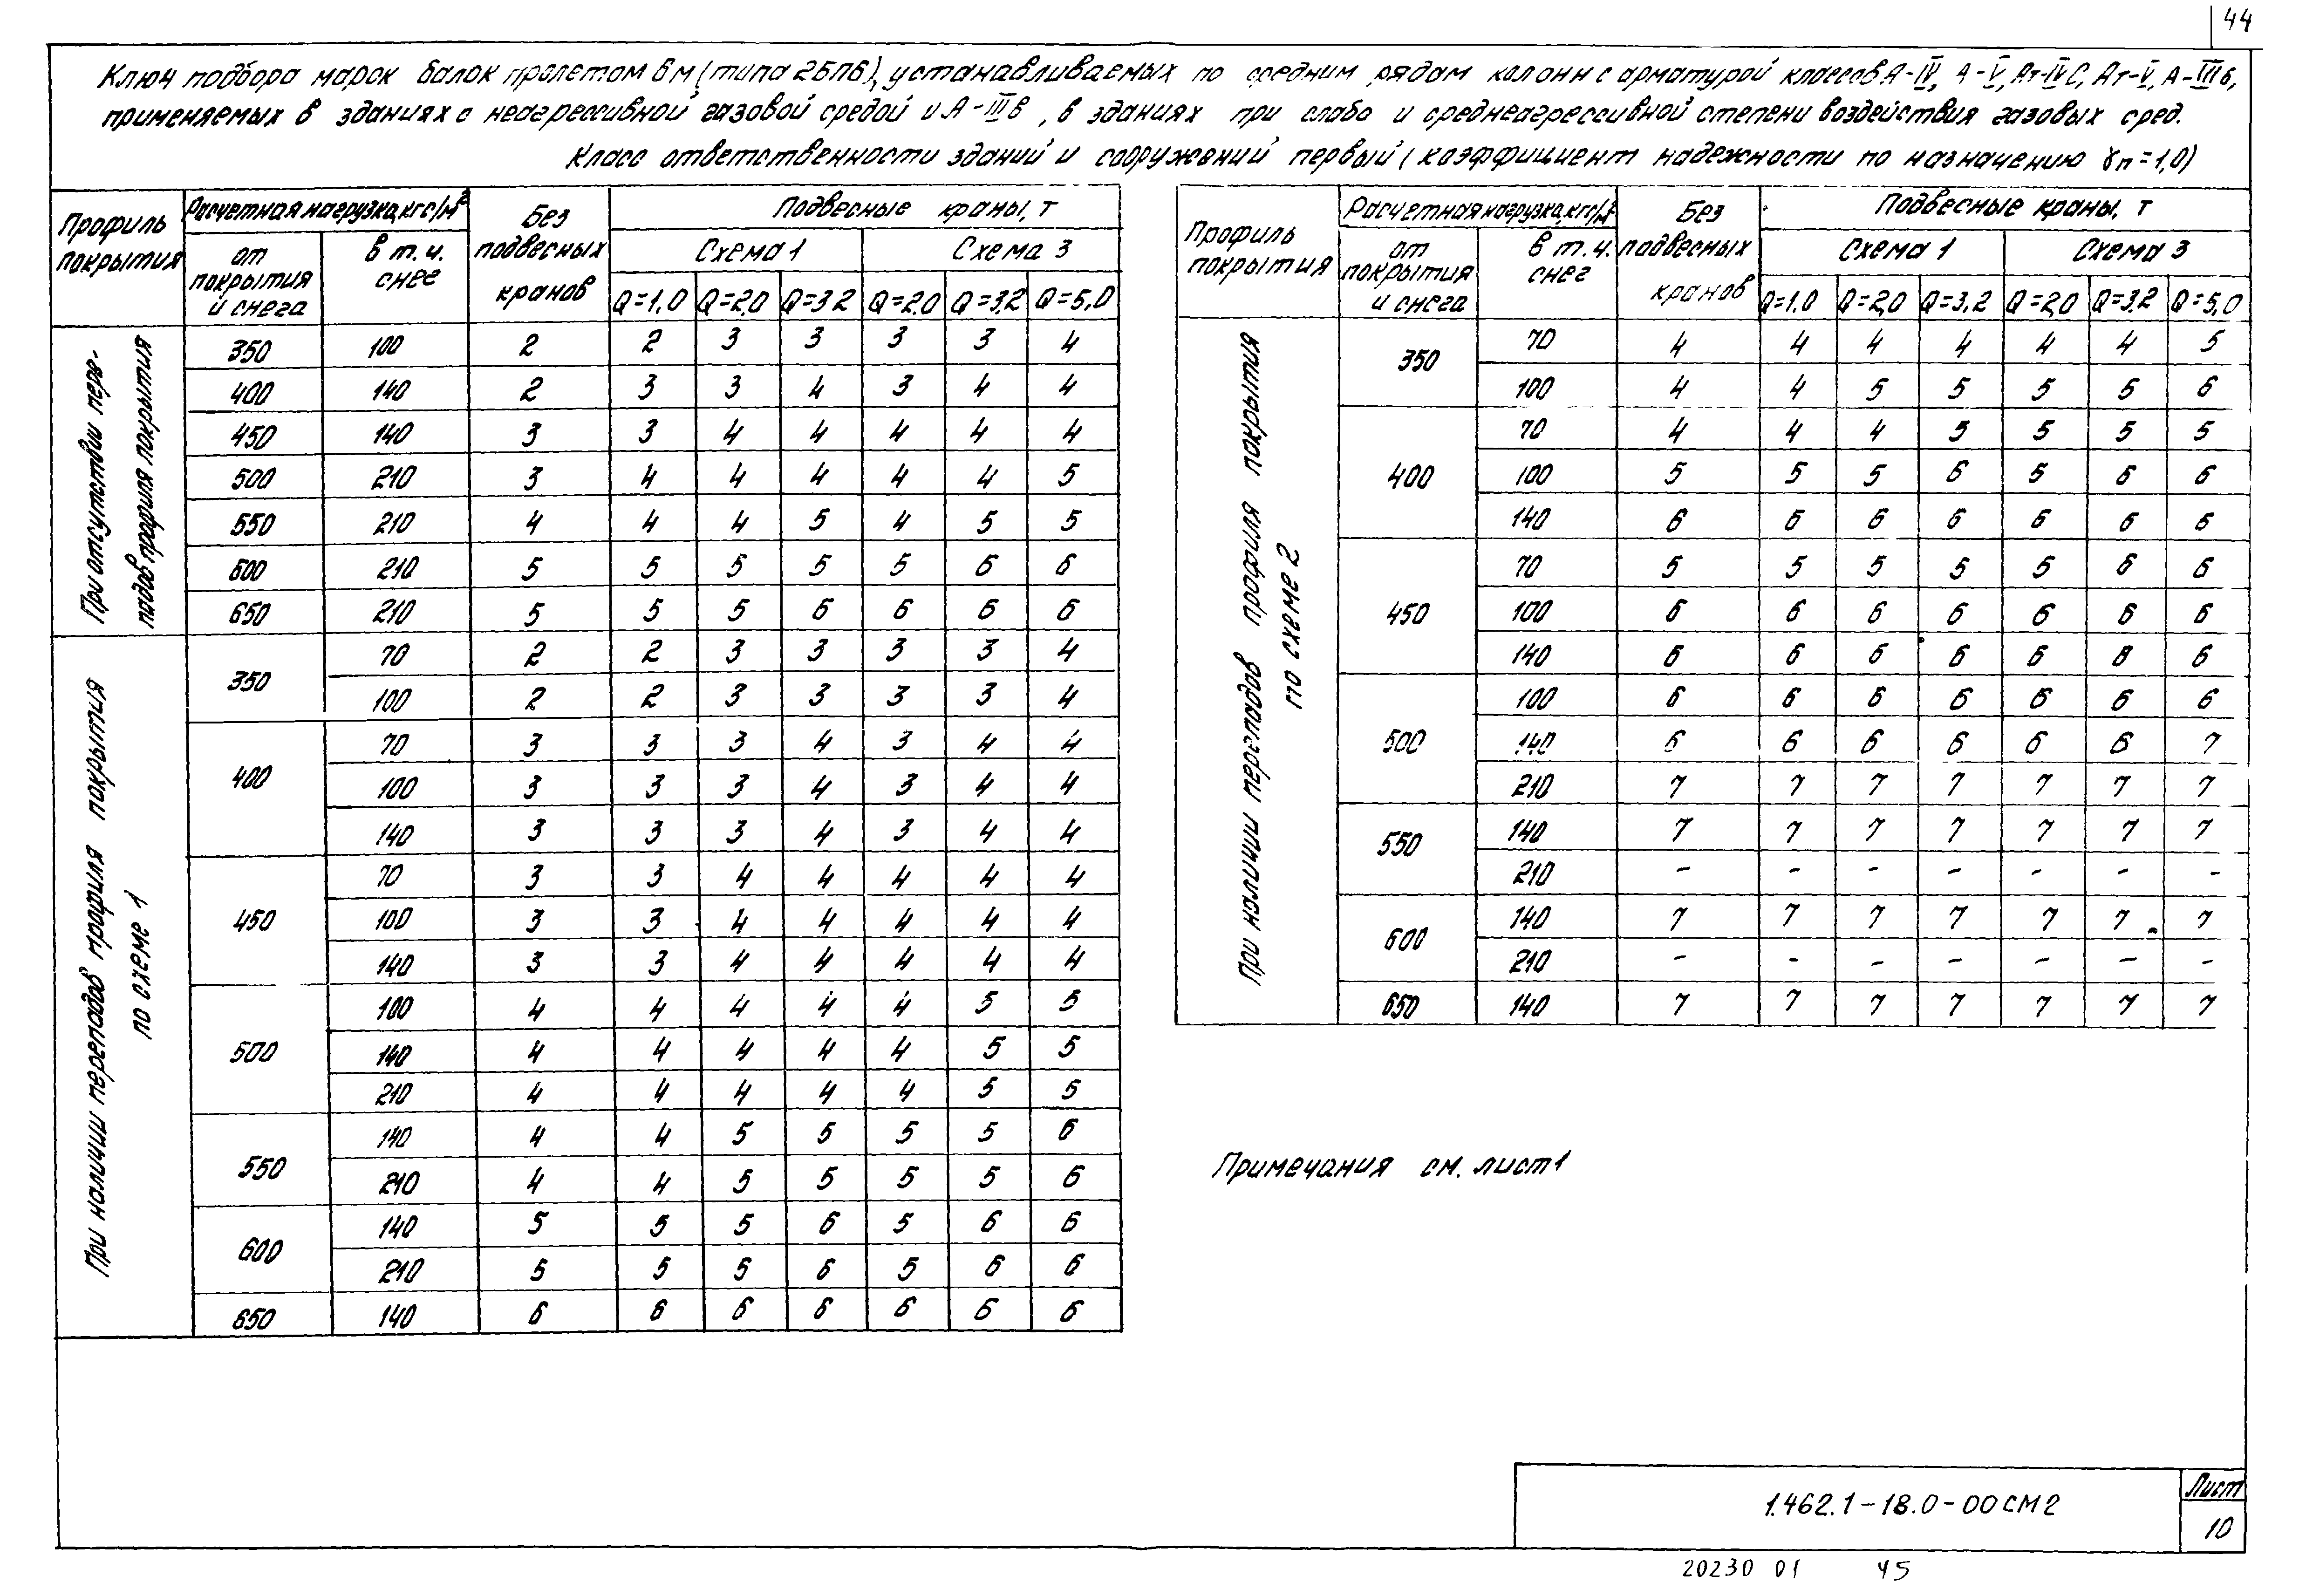 44
Ключ подбора марок балок пролетом 6м (типа 2БП6), устанавливаемых по средним рядам колонн с арматурой классов А-IV, А-V, Ат-IVС, Ат-V, А-IIIв,
применяемых в зданиях с неагрессивной газовой средой и А-IIIв, в зданиях при слабо и среднеагрессивной степени воздействия газовых сред.
Класс ответственности зданий и сооружений первый (коэффициент надежности по назначению γп=1,0)
Профиль покрытия | Расчетная нагрузка, кгс/м² | Без подвесных кранов | Подвесные краны, т
от покрытия и снега | в т.ч. снег | Схема 1 | Схема 3
Q=1,0 Q=2,0 Q=3,2 Q=2,0 Q=3,2 Q=5,0
При отсутствии перепадов профиля покрытия
350 100 2 2 3 3 3 3 4
400 140 2 3 3 4 3 4 4
450 140 3 3 4 4 4 4 4
500 210 3 4 4 4 4 4 5
550 210 4 4 4 5 4 5 5
600 210 5 5 5 5 5 6 6
650 210 5 5 5 6 6 6 6
При наличии перепадов профиля покрытия
по схеме 1
350 70 2 2 3 3 3 3 4
100 2 2 3 3 3 3 4
400 70 3 3 3 4 3 4 4
100 3 3 3 4 3 4 4
140 3 3 3 4 3 4 4
450 70 3 3 4 4 4 4 4
100 3 3 4 4 4 4 4
140 3 3 4 4 4 4 4
500 100 4 4 4 4 4 5 5
140 4 4 4 4 4 5 5
210 4 4 4 4 4 5 5
550 140 4 4 5 5 5 5 6
210 4 4 5 5 5 5 6
600 140 5 5 5 6 5 6 6
210 5 5 5 6 5 6 6
650 140 6 6 6 6 6 6 6
Профиль покрытия | Расчетная нагрузка, кгс/м² | Без подвесных кранов | Подвесные краны, т
от покрытия и снега | в т.ч. снег | Схема 1 | Схема 3
Q=1,0 Q=2,0 Q=3,2 Q=2,0 Q=3,2 Q=5,0
При наличии перепадов профиля покрытия
по схеме 2
350 70 4 4 4 4 4 4 5
100 4 4 5 5 5 5 6
400 70 4 4 4 5 5 5 5
100 5 5 5 6 5 6 6
140 6 6 6 6 6 6 6
450 70 5 5 5 5 5 6 6
100 6 6 6 6 6 6 6
140 6 6 6 6 6 6 6
500 100 6 6 6 6 6 6 6
140 6 6 6 6 6 6 7
210 7 7 7 7 7 7 7
550 140 7 7 7 7 7 7 7
210 - - - - - - -
600 140 7 7 7 7 7 7 7
210 - - - - - - -
650 140 7 7 7 7 7 7 7
Примечания см. лист 1
1.462.1-18.0-00СМ2
Лист
10
20230 01 45